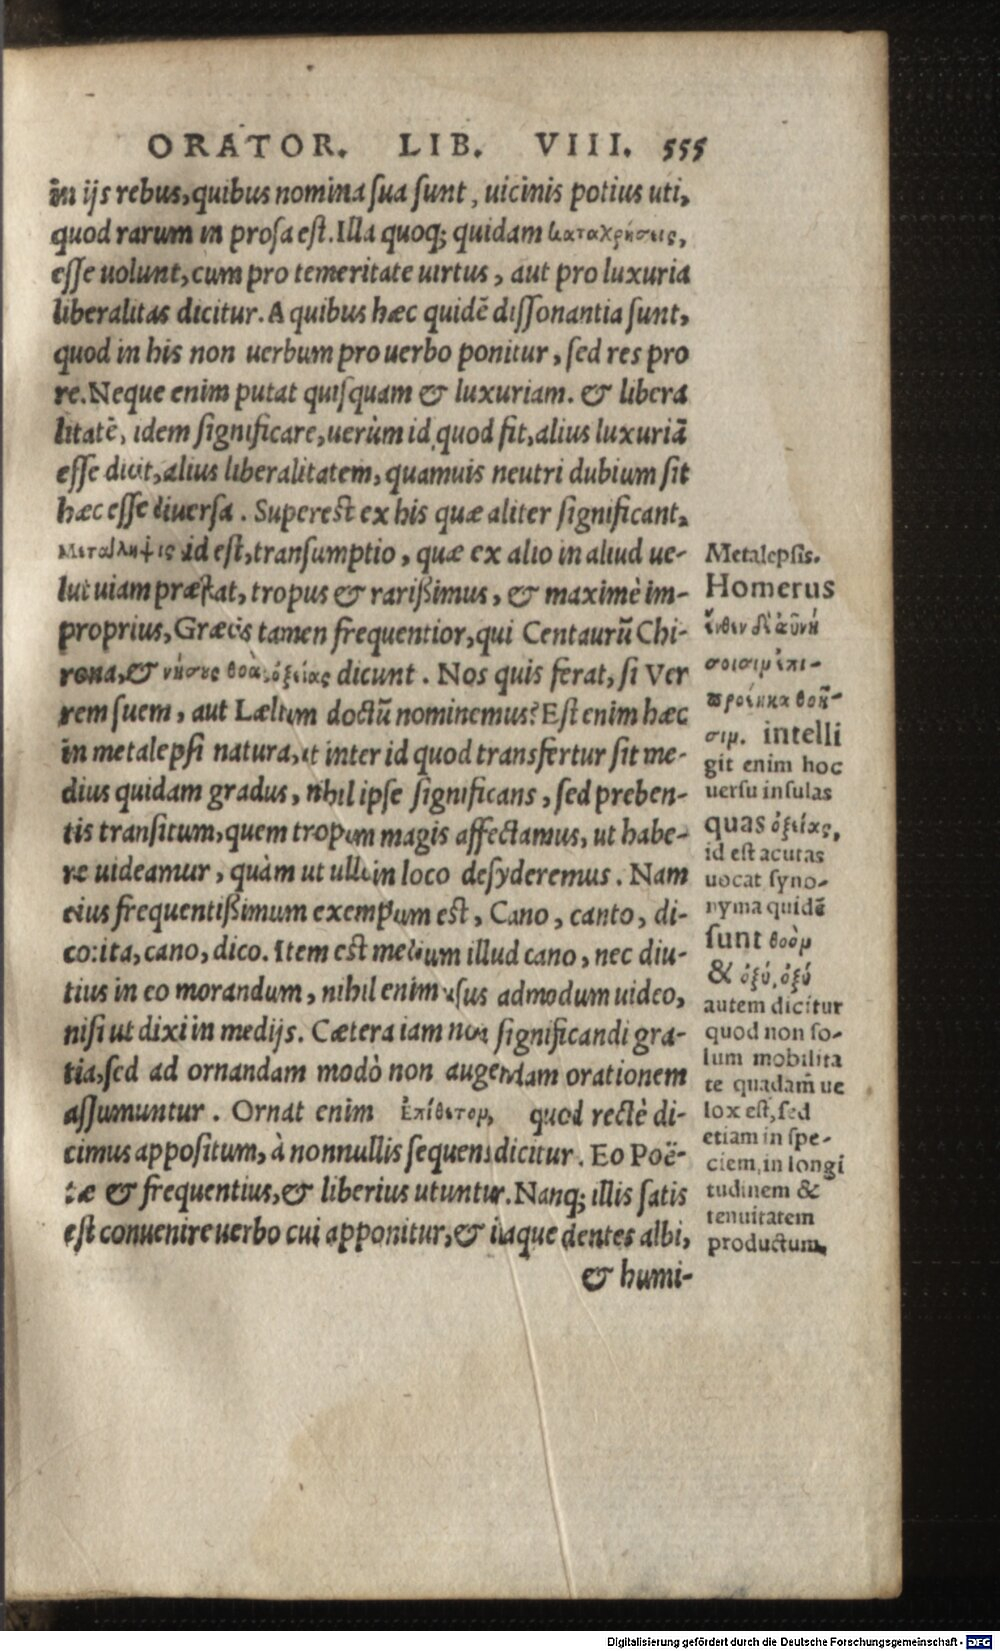 ORATOR. LIB. VIII. 555
in ijs rebus, quibus nomina sua sunt, uicinis potius uti,
quod rarum in prosa est. Illa quoq; quidam καταχρήσεις,
esse uolunt, cum pro temeritate uirtus, aut pro luxuria
liberalitas dicitur. A quibus hæc quidē dissonantia sunt,
quod in his non uerbum pro uerbo ponitur, sed res pro
re. Neque enim putat quisquam & luxuriam. & libera
litatē, idem significare, uerùm id quod fit, alius luxuriā
esse dicit, alius liberalitatem, quamuis neutri dubium sit
hæc esse diuersa. Superest ex his quæ aliter significant,
Μεταληψις id est, transumptio, quæ ex alio in aliud ue-
lut uiam præstat, tropus & rarißimus, & maximè im-
proprius, Græcis tamen frequentior, qui Centaurū Chi-
rona, & νήσους θοας ὀξείας dicunt. Nos quis ferat, si Ver
rem suem, aut Lælium doctū nominemus? Est enim hæc
in metalepsi natura, ut inter id quod transfertur sit me-
dius quidam gradus, nihil ipse significans, sed preben-
tis transitum, quem tropum magis affectamus, ut habe-
re uideamur, quàm ut ullo in loco desyderemus. Nam
eius frequentißimum exemplum est, Cano, canto, di-
co: ita, cano, dico. Item est medium illud cano, nec diu-
tius in eo morandum, nihil enim usus admodum uideo,
nisi ut dixi in medijs. Cætera iam non significandi gra-
tia, sed ad ornandam modò non augendam orationem
assumuntur. Ornat enim Ἐπίθετομ, quod rectè di-
cimus appositum, à nonnullis sequens dicitur. Eo Poë-
tæ & frequentius, & liberius utuntur. Nanq; illis satis
est conuenire uerbo cui apponitur, & itaque dentes albi,
& humi-
Metalepsis.
Homerus
ἔνθεν
σοισιμ ἐπι-
προέηκα θοῆ-
σιμ. intelli
git enim hoc
uersu insulas
quas ὀξείας,
id est acutas
uocat syno-
nyma quidē
sunt θοὸμ
& ὀξύ, ὀξύ
autem dicitur
quod non so-
lum mobilita
te quadam̄ ue
lox est, sed
etiam in spe-
ciem, in longi
tudinem &
tenuitatem
productum.
Digitalisierung gefördert durch die Deutsche Forschungsgemeinschaft - DFG